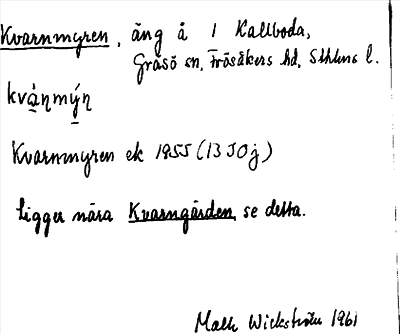 Kvarnmyren, äng å 1 Kallboda,
Gräsö sn, Frösåkers hd, Sthlms l.
kvàṇmýṇ
Kvarnmyren ek 1955 (13 I 0j)
Ligger nära Kvarngärden, se detta.
Wickström 1961